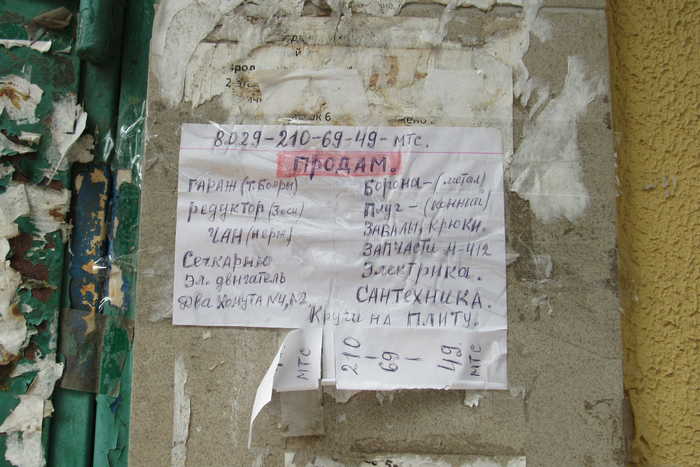 8029-210-69-49-мтс.
ПРОДАМ.
ГАРАЖ (т. Бояры)
редуктор
ЧАН (нерж)
Сечкарню
Эл. двигатель
Два Хомута №4, №2.
Борона - (метал)
Плуг - (конный)
ЗАВАЛЫ, КРЮКИ.
ЗАПЧАСТИ М-412
Электрика.
САНТЕХНИКА.
Круги на ПЛИТУ.
мтс
210
69
49
мтс